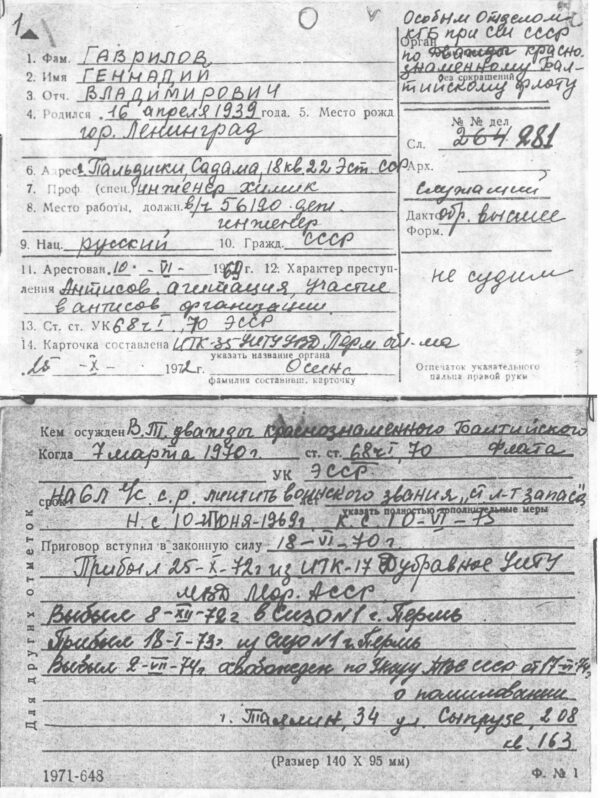 1
Особым Отделом
КГБ при СМ СССР
Орган по дважды красно
знаменному Бал-
без сокращений
тийскому флоту
1. Фам. ГАВРИЛОВ
2. Имя ГЕННАДИЙ
3. Отч. ВЛАДИМИРОВИЧ
4. Родился 16 апреля 1939 года. 5. Место рожд
гор. Ленинград
№ № дел
Сл. 264 281
6. Адрес г. Пальдиски Садама, 18 кв. 22 Эст. ССР
Арх.
7. Проф. (спец.) инженер химик
служащий
8. Место работы, должн. в/ч 56190 деж.
инженер
Дакто обр. высшее
Форм.
9. Нац. русский 10. Гражд. СССР
11. Арестован 10 - VI - 1969 г. 12. Характер преступ-
ления Антисов. агитация, участие
в антисов организации
не судим
13. Ст. ст. УК 68 ч I, 70 ЭССР
14. Карточка составлена ИТК-35 УИТУ УВД Перм обл-ма
указать название органа
25 - X - 1972 г.
фамилия составивш. карточку
Отпечаток указательного
пальца правой руки
Кем осужден В.Т. дважды краснознаменного Балтийского
Когда 7 марта 1970 г. ст. ст. 68 ч I, 70 Флота
УК ЭССР
срок на 6 л и/к с.р. лишить воинского звания „ст л-т запаса"
указать полностью дополнительные меры
Н. с 10-Июня-1969 г. К. с. 10-VI-75
Приговор вступил в законную силу 18-VI-70 г.
Прибыл 25-X-72 г из ИТК-17 Дубравное УИТУ
МВД Мор. АССР
Выбыл 8-XII-72 г в Сизо N1 г. Пермь
Прибыл 18-I-73 г из Сизо N1 г. Пермь
Выбыл 2-VII-74 г освобожден по Указу ПВС СССР от 17-VI-74 г.
о помиловании
г. Таллин, 34 ул. Сыпрусе 208
кв. 163
Для других отметок
(Размер 140 X 95 мм)
1971-648
Ф. № 1